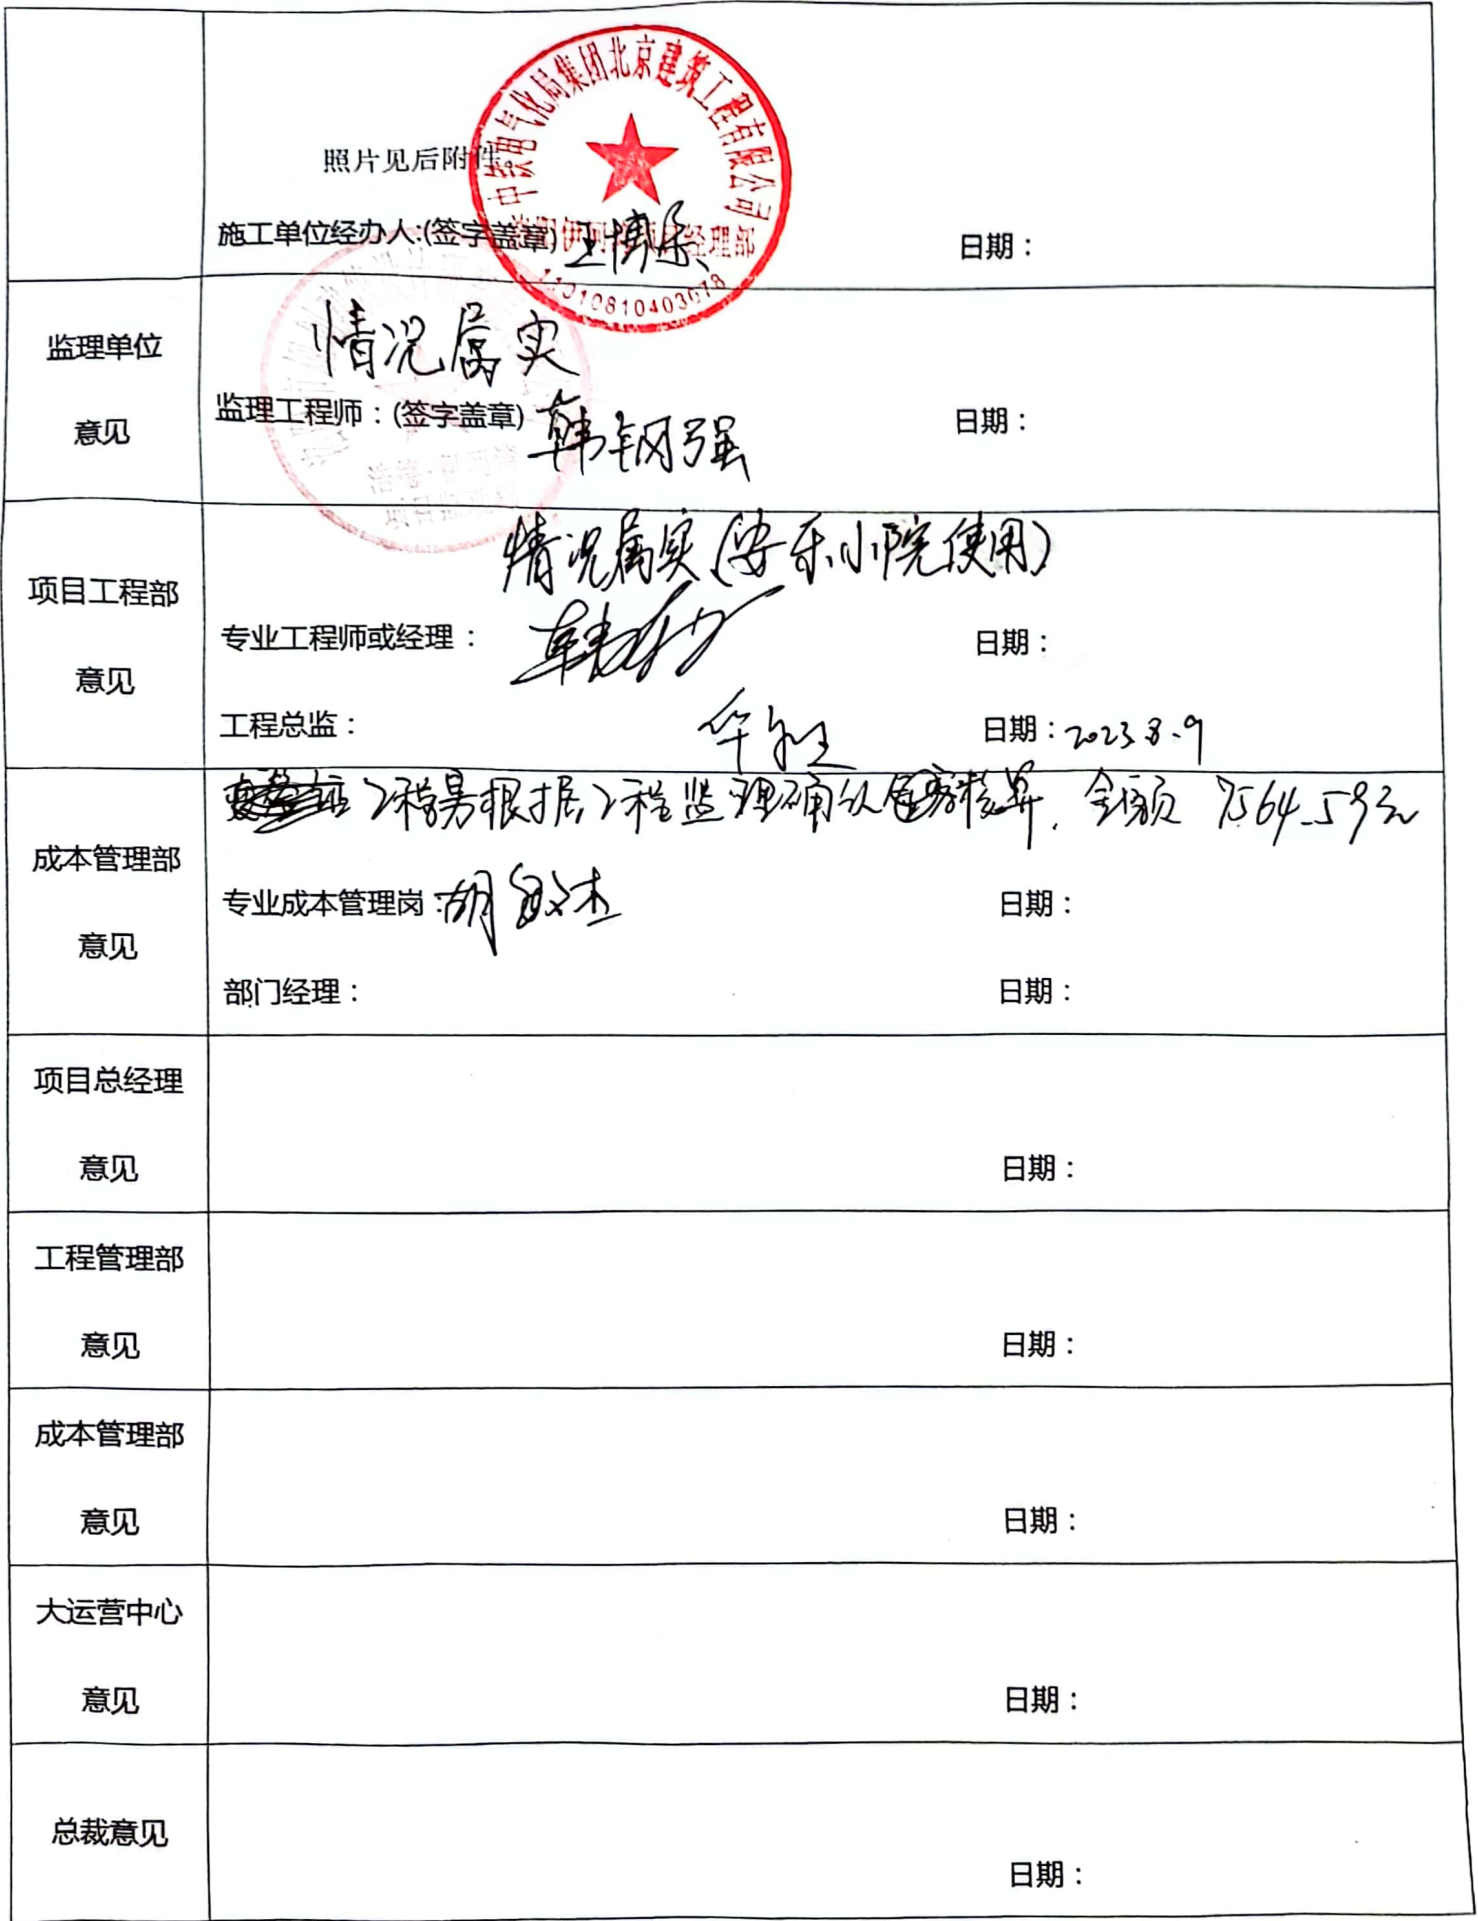 中铁电气化局集团北京建筑工程有限公司
照片见后附件。
施工单位经办人:(签字盖章) 王博乐
日期：
经理部
监理单位
意见
情况属实
监理工程师：(签字盖章) 韩钢强
日期：
项目工程部
意见
情况属实(安乐小院使用)
专业工程师或经理：
日期：
工程总监：
日期：2023.8.9
成本管理部
意见
工程量根据工程监理确认 核算，金额 7564.59元
专业成本管理岗：胡
日期：
部门经理：
日期：
项目总经理
意见
日期：
工程管理部
意见
日期：
成本管理部
意见
日期：
大运营中心
意见
日期：
总裁意见
日期：